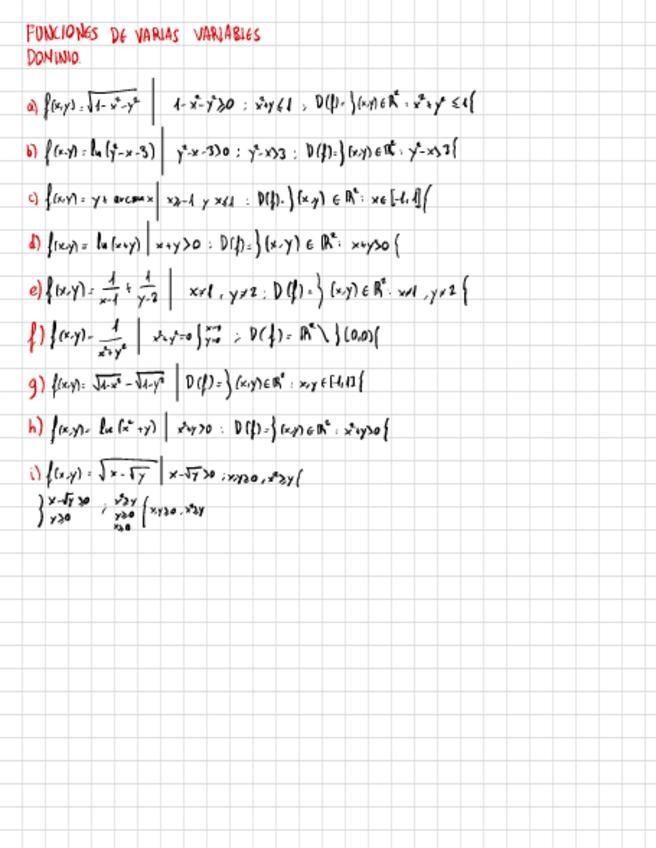 FUNCIONES DE VARIAS VARIABLES
DOMINIO.
a) f(x,y) = √(1-x²-y²) | 1-x²-y²≥0 ; x²+y²≤1 ; D(f) = }(x,y)∈ℝ² : x²+y² ≤ 1{
b) f(x,y) = ln(y²-x-3) | y²-x-3>0 ; y²-x>3 ; D(f) = }(x,y)∈ℝ² : y²-x>3{
c) f(x,y) = y + arcsin x | x≥-1 y x≤1 : D(f) = }(x,y) ∈ ℝ² : x∈[-1,1]{
d) f(x,y) = ln(x+y) | x+y>0 : D(f) = }(x,y) ∈ ℝ² : x+y>0{
e) f(x,y) = 1/(x-1) + 1/(y-2) | x≠1, y≠2 : D(f) = }(x,y)∈ℝ² : x≠1, y≠2{
f) f(x,y) = 1/(x²+y²) | x²+y²=0 } x=0 y=0 ; D(f) = ℝ² \ }(0,0){
g) f(x,y) = √(1-x²) - √(1-y²) | D(f) = }(x,y)∈ℝ² : x,y∈[-1,1]{
h) f(x,y) = ln(x²+y) | x²+y>0 : D(f) = }(x,y)∈ℝ² : x²+y>0{
i) f(x,y) = √(x-√y) | x-√y≥0 ; x,y≥0, x²≥y{
} x-√y≥0 y≥0 ; x²≥y y≥0 x≥0 { x,y≥0, x²≥y